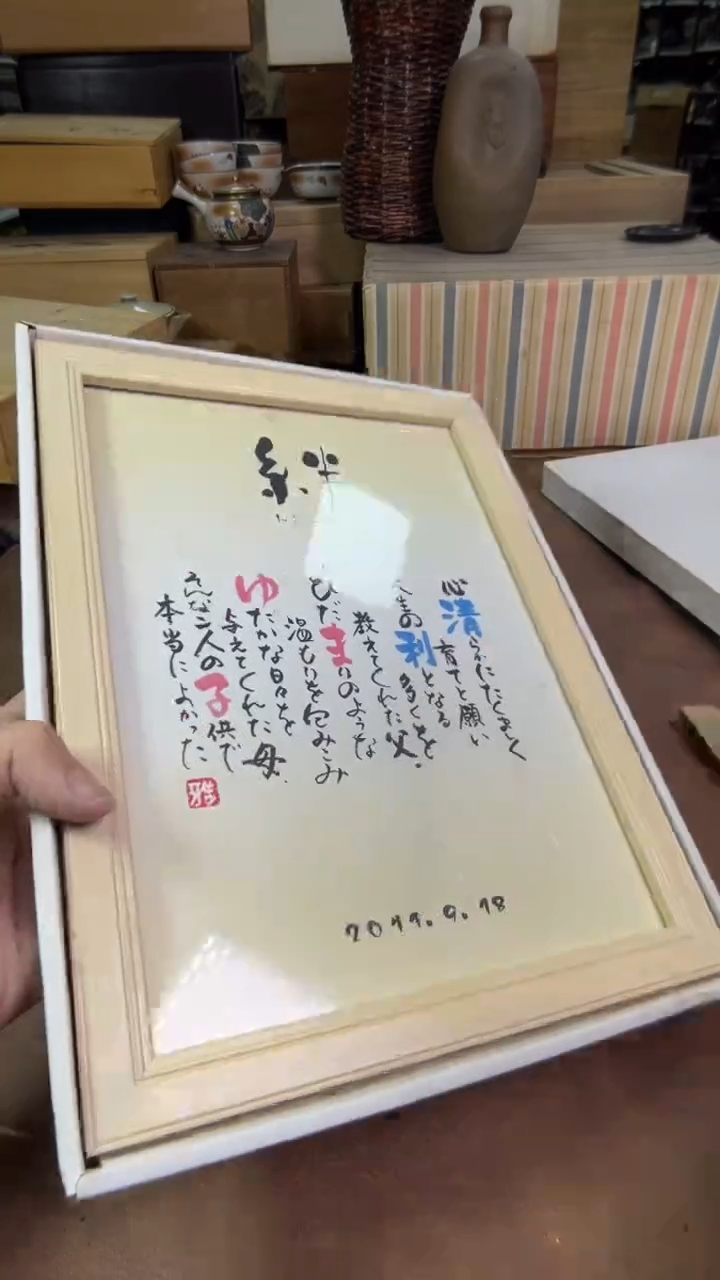 絆
心清らかにたくましく
育てと願い
生の利となる
多くを
教えてくれた父。
ひだまりのような
温もりを包みこみ
ゆたかな日々を
与えてくれた母、
そんな二人の子供で
本当によかった
雅
2011.9.18